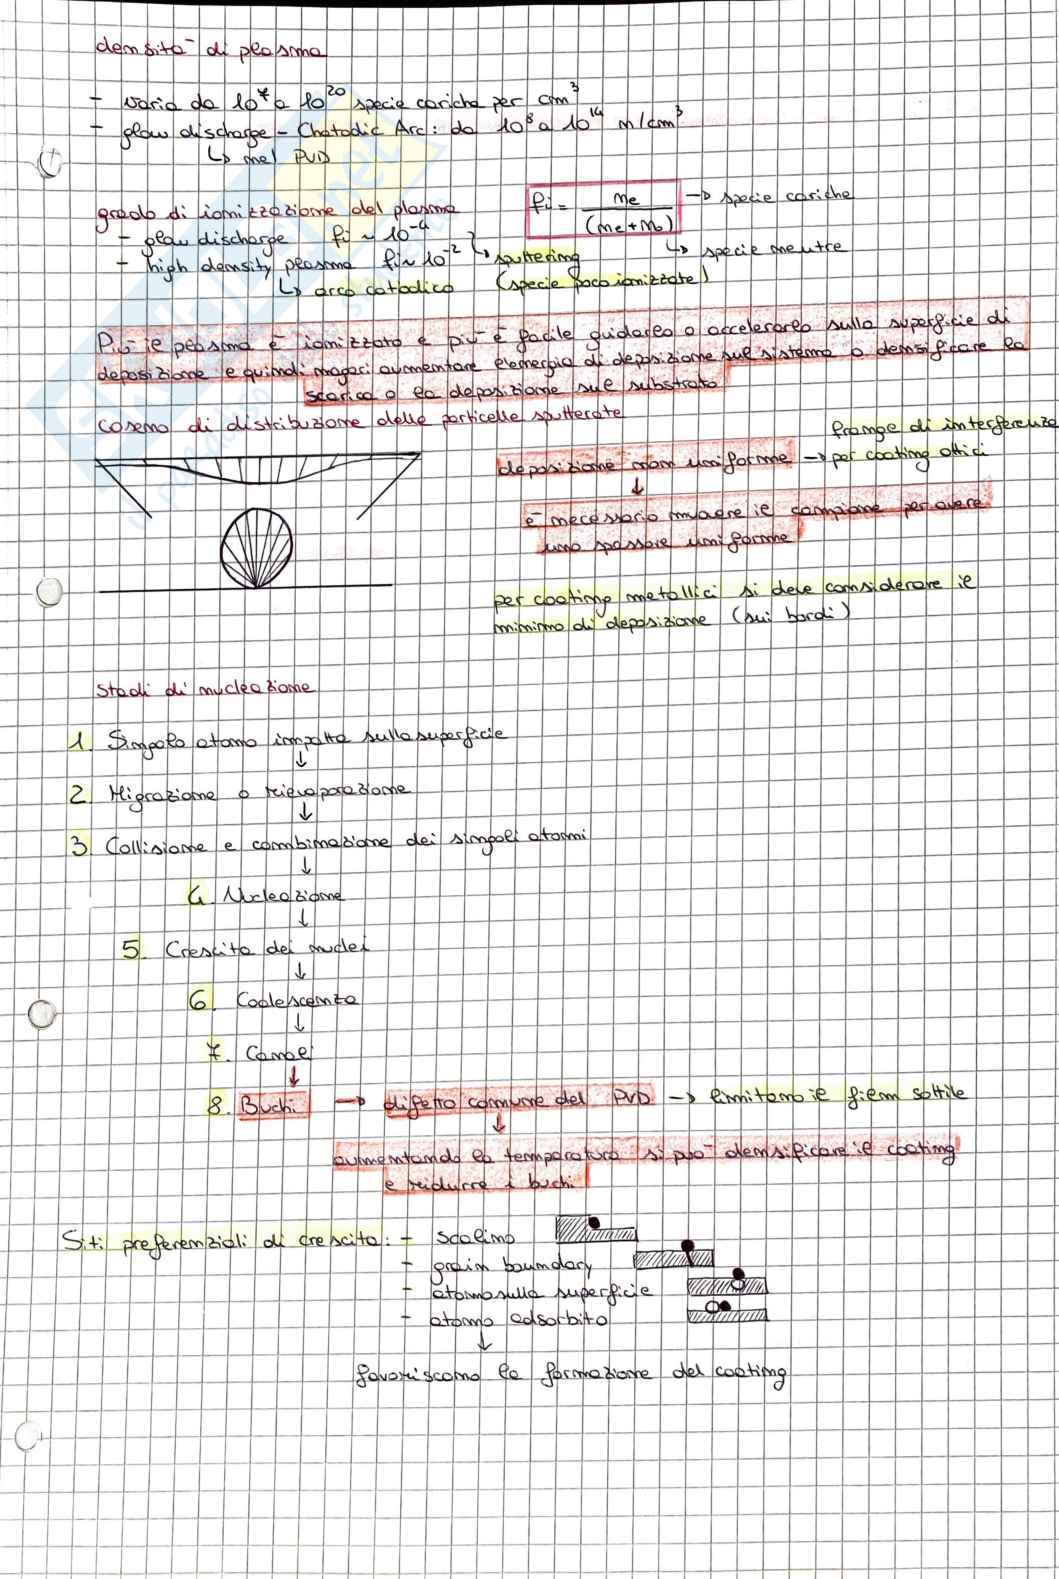 densità di plasma
- varia da 10⁷ a 10²⁰ specie cariche per cm³
- glow discharge - Chatodic Arc: da 10⁸ a 10¹⁴ n/cm³
↳ nel PVD
grado di ionizzazione del plasma
fi = ne / (ne+no) → specie cariche
↳ specie neutre
- glow discharge fi ~ 10⁻⁴
- high density plasma fi ~ 10⁻² ↳ sputtering
↳ arco catodico (specie poco ionizzate)
Più il plasma è ionizzato e più è facile guidarlo o accelerarlo sulla superficie di
deposizione e quindi magari aumentare l'energia di deposizione sul sistema o densificare la
scarica o la deposizione sul substrato
coseno di distribuzione delle particelle sputterate
deposizione non uniforme → frange di interferenze
per coating ottici
↓
è necessario muovere il campione per avere
uno spessore uniforme
per coating metallici si deve considerare il
minimo di deposizione (sui bordi)
stadi di nucleazione
1. Singolo atomo impatta sulla superficie
↓
2. Migrazione o rievaporazione
↓
3. Collisione e combinazione dei singoli atomi
↓
4. Nucleazione
↓
5. Crescita dei nuclei
↓
6. Coalescenza
↓
7. Canali
↓
8. Buchi → difetto comune del PVD → limitano il film sottile
↓
aumentando la temperatura si può densificare il coating
e ridurre i buchi
Siti preferenziali di crescita: - scalino
- grain boundary
- atomo sulla superficie
- atomo adsorbito
↓
favoriscono la formazione del coating